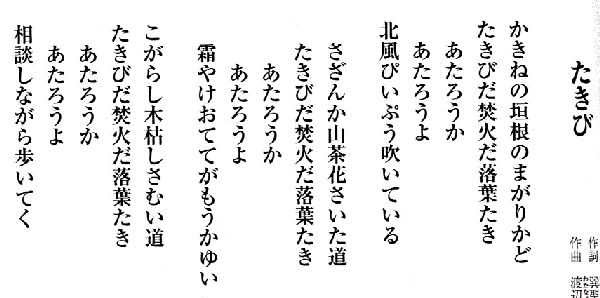 たきび
作詞 巽聖
作曲 渡辺
かきねの垣根のまがりかど
たきびだ焚火だ落葉たき
あたろうか
あたろうよ
北風ぴいぷう吹いている
さざんか山茶花さいた道
たきびだ焚火だ落葉たき
あたろうか
あたろうよ
霜やけおててがもうかゆい
こがらし木枯しさむい道
たきびだ焚火だ落葉たき
あたろうか
あたろうよ
相談しながら歩いてく